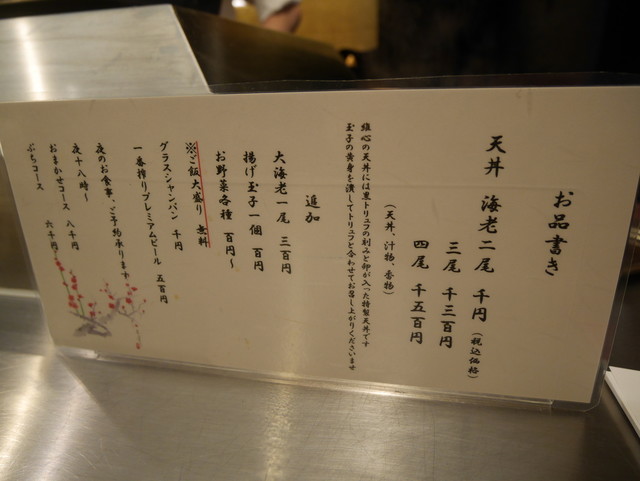 お品書き
天丼 海老二尾 千円（税込価格）
三尾 千三百円
四尾 千五百円
（天丼、汁物、香物）
雄心の天丼には黒トリュフの刻みと卵が入った特製天丼です
玉子の黄身を潰してトリュフと合わせてお召し上がりくださいませ
追加
大海老一尾 三百円
揚げ玉子一個 百円
お野菜各種 百円～
※ご飯大盛り 無料
グラスシャンパン 千円
一番搾りプレミアムビール 五百円
夜のお食事、ご予約承ります
夜十八時～
おまかせコース 八千円
ぷちコース 六千円